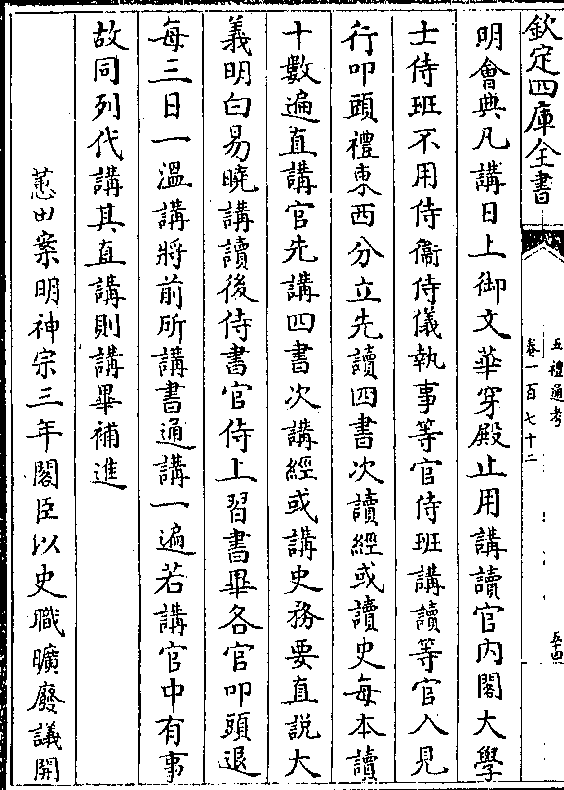 欽定四庫全書
五禮通考
卷一百七十二
五十四
明會典凡講日上御文華穿殿止用講讀官内閣大學
士侍班不用侍衞侍儀執事等官侍班講讀等官入見
行叩頭禮東西分立先讀四書次讀經或讀史每本讀
十數遍直講官先講四書次講經或講史務要直説大
義明白易曉講讀後侍書官侍上習書畢各官叩頭退
每三日一溫講將前所講書通講一遍若講官中有事
故同列代講其直講則講畢補進
蕙田案明神宗三年閣臣以史職曠廢議開